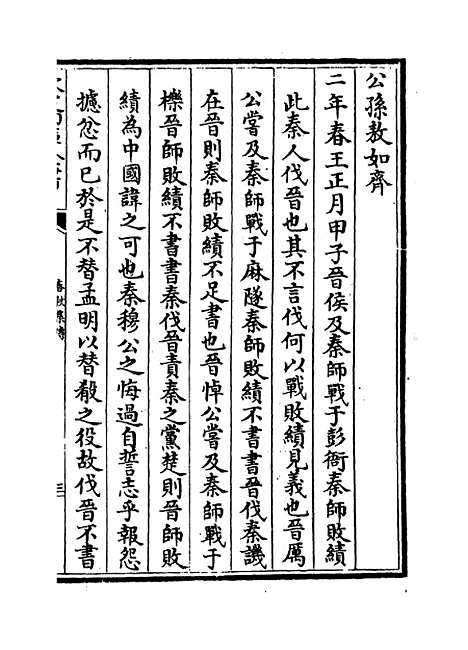 公孫敖如齊
二年春王正月甲子晉侯及秦師戰于彭衙秦師敗績
此秦人伐晉也其不言伐何以戰敗績見義也晉厲
公嘗及秦師戰于麻隧秦師敗績不書書晉伐秦譏
在晉則秦師敗績不足書也晉悼公嘗及秦師戰于
櫟晉師敗績不書書秦伐晉責秦之黨楚則晉師敗
績為中國諱之可也秦穆公之悔過自誓志乎報怨
攄忿而已於是不替孟明以替殽之役故伐晉不書
春秋集傳
三